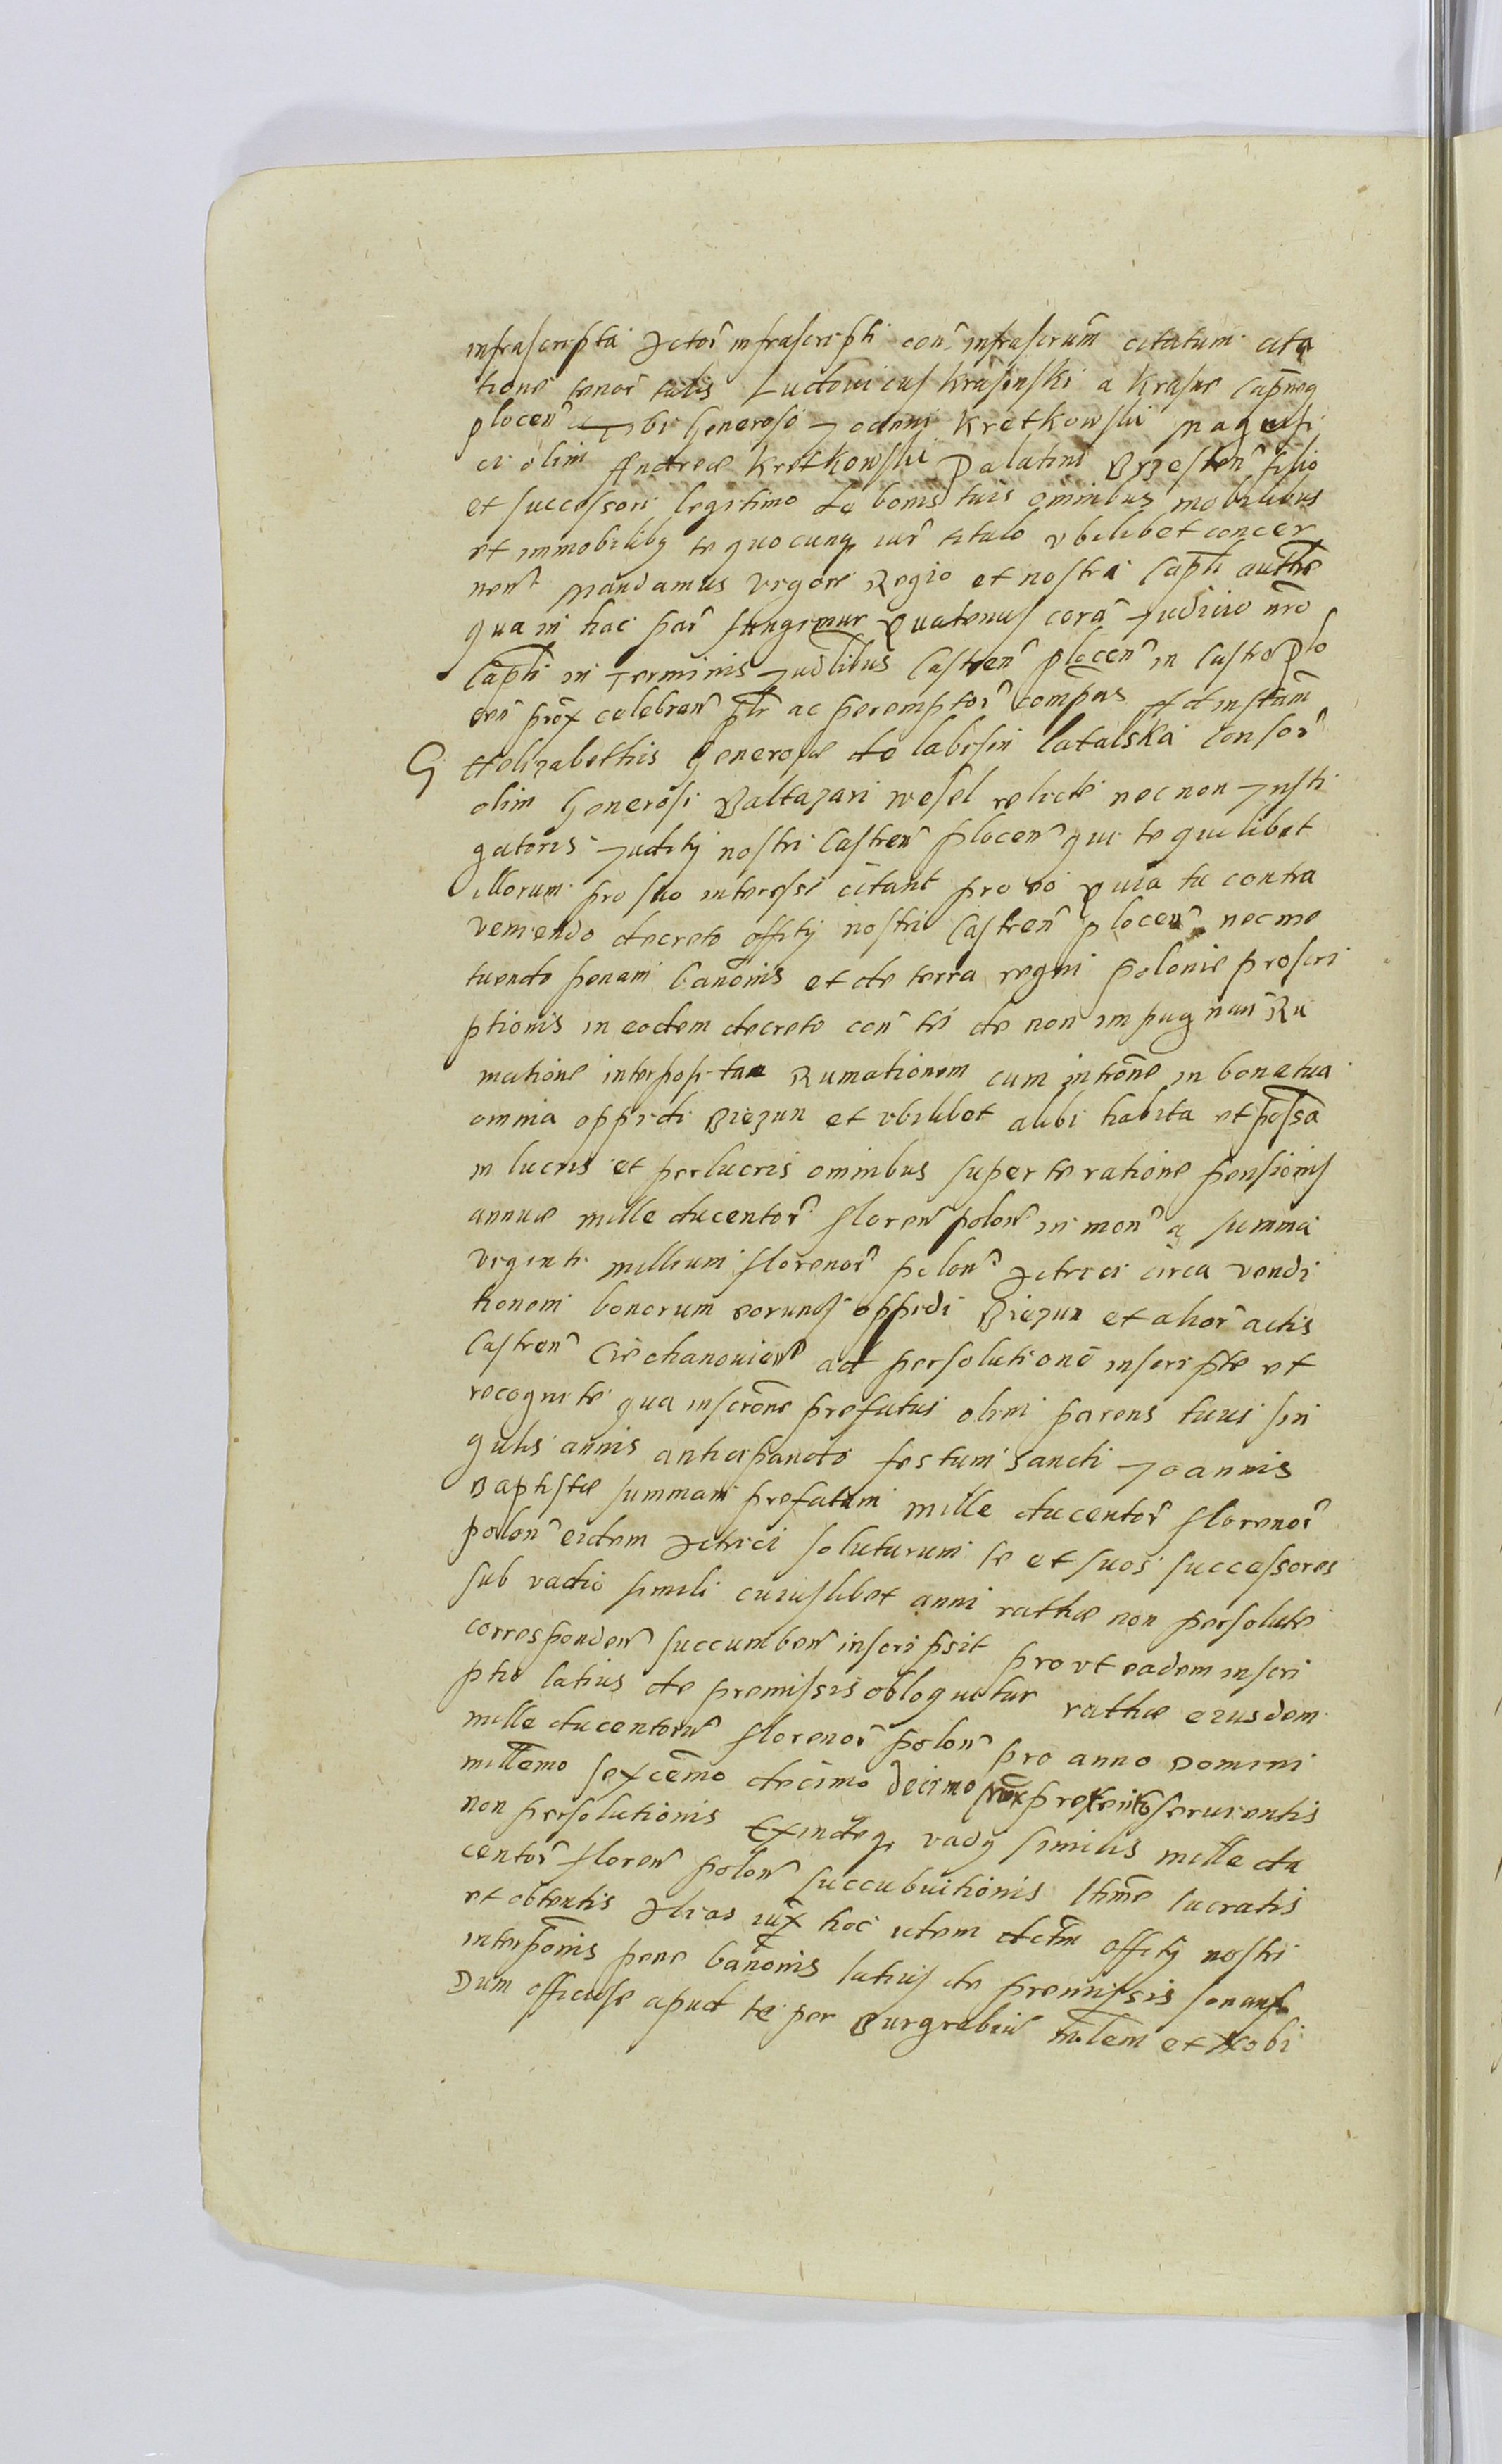 infrascripta Actor̃ infrascripti con̄ infrascrūm citatum cita
tione tenor̃ talis Ludouicus Krasinski a Krasne Capn̄eq
plocen̄ Tibi Generoso Joanni Kretkowski Magnifi
ci olim Andreæ Kretkowski Palatini Brzesten̄ filio
et successori legitimo de bonis tuis omnibus mobilibus
et immobilibq te quocunq iur̄ titulo vbilibet concer
nen̄t Mandamus vigore Regio et nostra Capli authē
qua in hac par̄ fungimur Quatenus corā Judicio nr̄o
Capli in Terminis Judlibus Castren̄ Plocen̄ in Castro Plo
cen̄ prox̄ celebran̄ pltr ac peremptor̄ compēas Ad instām
G Helizabethis Generosæ de labisin latalska consor̄
olim Generosi Baltazari Wesel relictē necnon Insti
gatoris Juditÿ nostri Castren̄ Plocen̄ qui te quilibet
illorum pro suo interesse citant pro eo Quia tu contra
veniendo decreto offitÿ nostri Castren̄ plocen̄ nec me
tuendo penam banōnis et de terra regni polonie proscri
ptionis in eodem decreto con̄ te de non impugnan̄ Ru
matione interposita Rumationem cum intrōne in bona tua
omnia oppidi Biezun et vbilibet alibi habita et possa
in lucris et perlucris omnibus super te ratione pensionis
annuæ mille ducentor̄ floren̄ polon̄ in mon̄ a summa
viginti millium florenor̄ polon̄ Actrici circa vendi
tionem bonorum eorund̄ oppidi Biezun et alior̄ actis
Castren̄ Ciechanouien̄ ad persolutionē inscripte et
recognite qua inscrōne prefatus olim parens tuus sin
gulis annis anticipando festum Sancti Joannis
Baptistæ summam prefatam mille ducentor̄ florenor̄
polon̄ eidem Actrici soluturum se et suos successores
sub vadio simili cuiuslibet anni rathæ non persolute
corresponden̄ succumben̄ inscripsit pro vt eadem inscri
ptio latius de premissis obloquitur rathæ eiusdem
mille ducentorum̄ florenor̄ polon̄ pro anno Domini
millemo sexcēmo decimo decimo prox̄ preterito seruientis
non persolutionis Exindeq̨ vadÿ similis mille du
centor̄ floren̄ polon̄ succubuitionis ltime lucratis
et obtentis Alias iux̄ hoc idem dctm offitÿ nostri
interpōnis pene banōnis latius de premissis sonans
Dum officiose apud te per Burgrabiū nr̄lem et Nobi